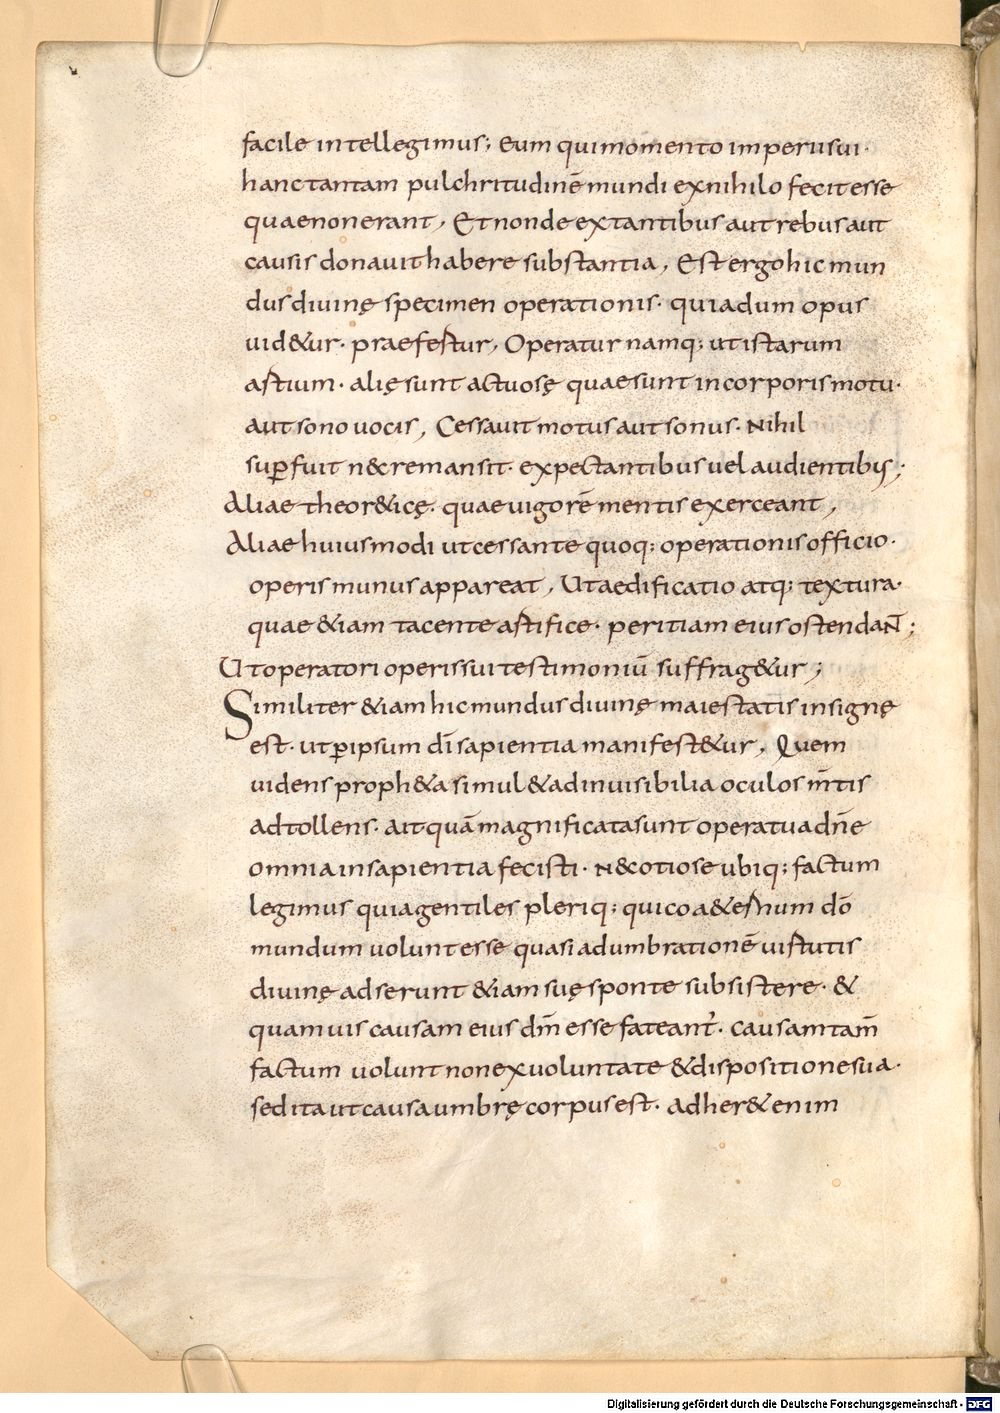 facile intellegimus; Eum qui momento imperii sui·
hanc tantam pulchritudinē mundi ex nihilo fecit esse
quae non erant, Et non de extantibus aut rebus aut
causis donauit habere substantia, Est ergo hic mun
dus diuinę specimen operationis· quia dum opus
uid&ur· praefertur, Operatur namq; ut istarum
artium· alię sunt actuosę quae sunt in corporis motu·
aut sono uocis, Cessauit motus aut sonus· Nihil
suꝑfuit n&c remansit· expectantibus uel audientibus;
Aliae theor&icę· quae uigorē mentis exerceant,
Aliae huiusmodi ut cessante quoq; operationis officio·
operis munus appareat, Ut aedificatio atq; textura·
quae &iam tacente artifice· peritiam eius ostendant̄;
Ut operatori operis sui testimoniū suffrag&ur;
Similiter &iam hic mundus diuinę maiestatis insignę
est· ut ꝑ ipsum dī sapientia manifest&ur, Quem
uidens proph&a simul & ad inuisibilia oculos m̄tis
adtollens· ait quā magnificata sunt opera tua dn̄e
omnia in sapientia fecisti· N&c otiose ubiq; factum
legimus quia gentiles pleriq; qui coa&ernum dō
mundum uolunt esse quasi adumbrationē uirtutis
diuinę adserunt &iam suę sponte subsistere· &
quamuis causam eius dm̄ esse fateant᷑· causam tam̄
factum uolunt non ex uoluntate & dispositione sua·
sed ita ut causa umbrę corpus est· adher& enim
Digitalisierung gefördert durch die Deutsche Forschungsgemeinschaft - DFG